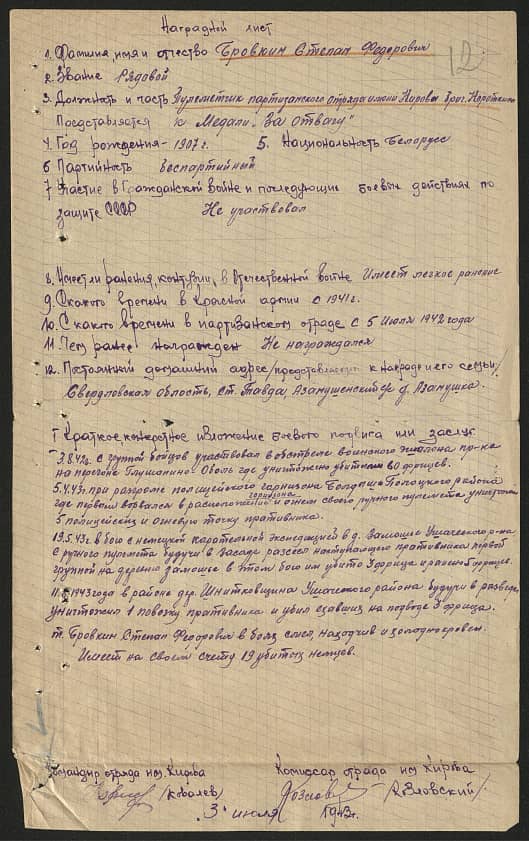 Наградной лист
12
1. Фамилия, имя и отчество Бровкин Степан Федорович
2. Звание Рядовой
3. Должность и часть Пулеметчик партизанского отряда имени Кирова бриг. Короткина
Представляется к Медали „За отвагу"
4. Год рождения - 1907 г. 5. Национальность Белорусс
6 Партийность беспартийный
7 Участие в Гражданской войне и последующих боевых действиях по
защите СССР Не участвовал
8. Имеет ли ранения, контузии, в Отечественной войне Имеет легкое ранение
9. С какого времени в Красной армии с 1941 г.
10. С какого времени в партизанском отряде с 5 Июля 1942 года
11. Чем ранее награжден Не награждался
12. Постоянный домашний адрес /представляемого к награде и его семьи/
Свердловская область, Ст. Тавда, Азанушенский р. д. Азанушка.
I Краткое, конкретное изложение боевого подвига или заслуг
3.8.42г. с группой бойцов участвовал в обстреле воинского эшелона пр-ка
на перегоне Глушанино Оболь где уничтожено убитыми 60 фрицев.
5.4.43г. при разгроме полицейского гарнизона Полоцкого района
где первый ворвался в расположение гарнизона и огнем своего ручного пулемета уничтожил
5 полицейских и огневую точку противника.
19.5.43г. в бою с немецкой карательной экспедицией в д. Замошье Ушачского р-на
с ручного пулемета будучи в засаде рассеял наступающего противника первой
группой на деревню Замошье в этом бою им убито 3 фрица и ранено
1943 года в районе дер. Ушачского района будучи в разведке
уничтожил 1 повозку противника и убил ехавших на подводе 3 фрица.
т. Бровкин Степан Федорович в боях смел, находчив и хладнокровен.
Имеет на своем счету 19 убитых немцев.
Командир отряда им. Кирова Комиссар отряда им Кирова
/Ковалев/ /Козловский/
3 июля 1943г.